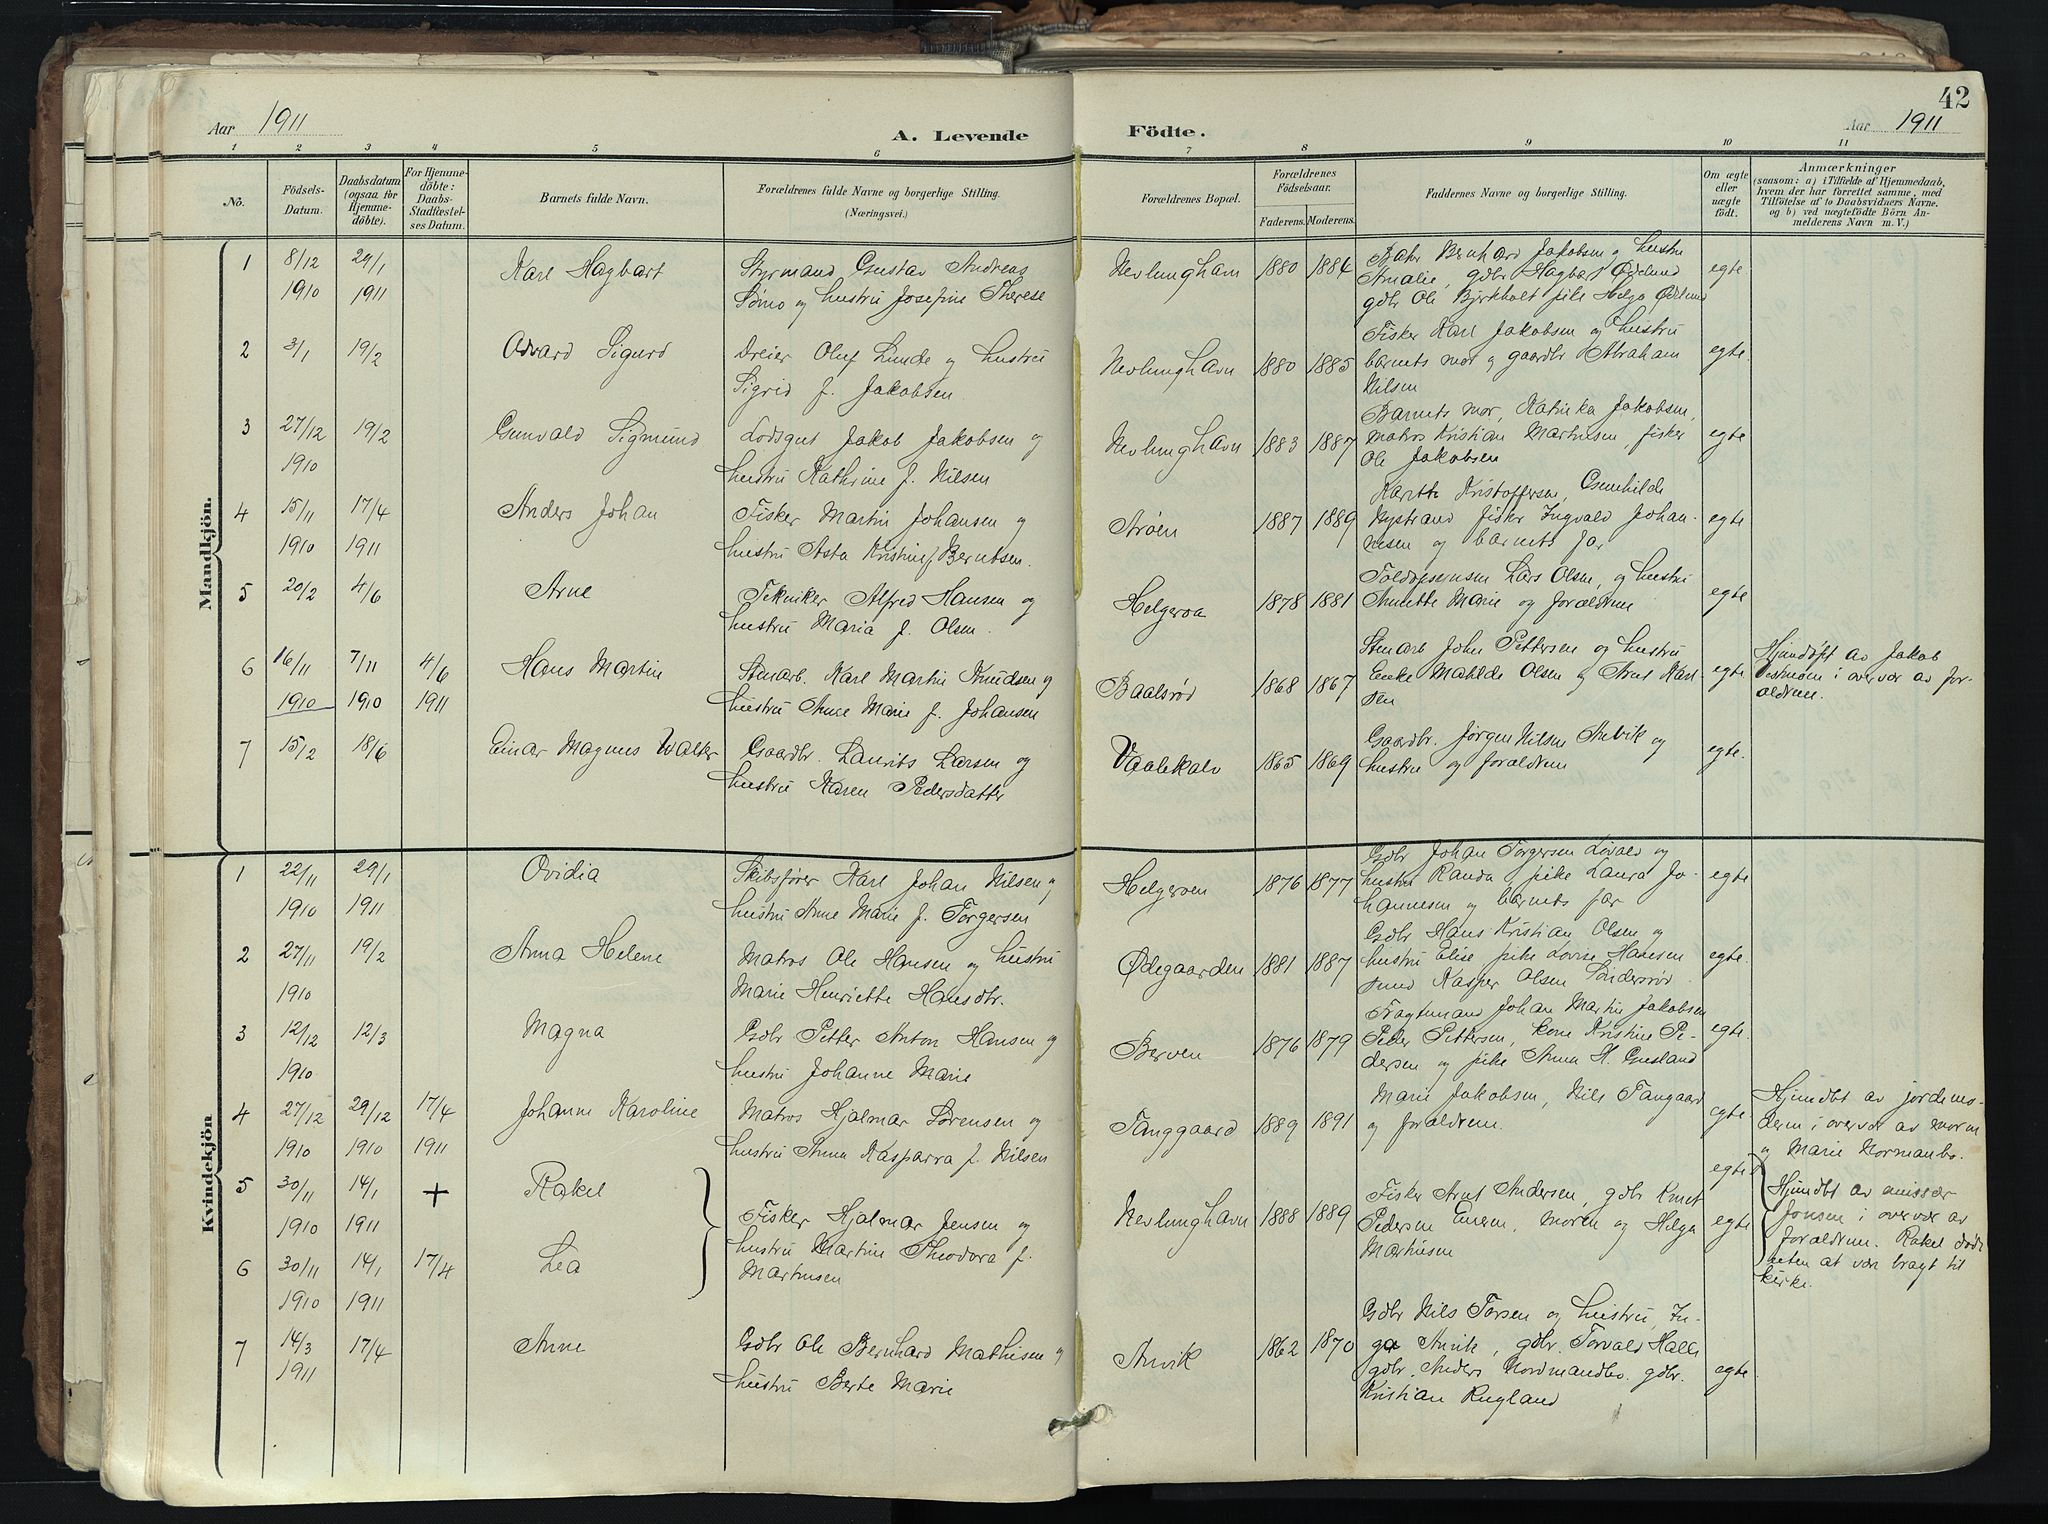 42
Aar 1911
A. Levende Födte.
Aar 1911
1 2 3 4 5 6 7 8 9 10 11
No.
Födsels-Datum.
Daabsdatum (ogsaa for Hjemmedöbte).
For Hjemmedöbte: Daabs-Stadfæstelses Datum.
Barnets fulde Navn.
Forældrenes fulde Navne og borgerlige Stilling. (Næringsvei.)
Forældrenes Bopæl.
Forældrenes Födselsaar.
Faderens. Moderens.
Faddernes Navne og borgerlige Stilling.
Om ægte eller uægte födt.
Anmærkninger
(saasom: a) i Tilfælde af Hjemmedaab, hvem der har forrettet samme, med Tilföielse af to Daabsvidners Navne. og b) ved uægtefödte Börn Anmelderens Navn m. V.)
Mandkjön.
1 8/12 1910 29/1 1911 Karl Hagbart
Styrmand Gustav Andreas
Sømo og hustru Josefine Therese
Nevlunghavn 1880 1884
Bernhard Jakobsen og hustru
Amalie, gdbr Hagbart Ødelund
gdbr Ole Bjrkholt pike Helga Ødelund
egte
2 3/1 19/2 Odvard Sigurd
Dreier Oluf Linde og hustru
Sigrid f. Jakobsen
Nevlunghavn 1880 1885
Fisker Karl Jakobsen og hustru
barnets mor og gaardbr Abraham
Nilsen
egte
3 27/12 1910 19/2 Gunvald Sigmund
Lodsgut Jakob Jakobsen og
hustru Kathrine f. Nilsen
Nevlunghavn 1883 1887
Barnets mor, Katinka Jakobsen,
matros Kristian Martinsen, fisker
Ole Jakobsen
egte
4 15/11 1910 17/4 1911 Anders Johan
Fisker Martin Johansen og
hustru Asta Kristine f Berntsen.
Arøen 1887 1889
Kristoffersen, Gunhilde
Nystrand fisker Ingvald Johan-
nesen og barnets far
egte
5 20/2 4/6 Arne
Tekniker Alfred Hansen og
hustru Maria f. Olsen.
Helgeroa 1878 1881
Toldopsynsm Lars Olsen, og hustru
Annette Marie og forældrene
egte
6 16/11 1910 7/11 1910 4/6 1911 Hans Martin
Stenarb. Karl Martin Knudsen og
hustru Anne Marie f. Johansen
Baalsrød 1868 1867
Stenarb John Pettersen og hustru
Enke Matilde Olsen og Arnt Karl-
sen
egte
Hjemdøpt av Jakob
Vestmoen i overvær av for-
ældrene.
7 15/2 18/6 Einar Magnus Walter
Gaardbr. Laurits Larsen og
hustru Karen Pedersdatter
Vaalekalv 1865 1869
Gaardbr. Jørgen Nilsen Anvik og
hustru og forældrene
egte.
Kvindekjön
1 22/11 1910 29/1 1911 Ovidia
Skibsfører Karl Johan Nilsen og
hustru Anne Marie f. Torgersen
Helgeroen 1876 1877
Gdbr Johan Torgersen Løvald og
hustru Randa, pike Laura Jo-
hannesen og barnets far
egte
2 27/11 1910 19/2 Anna Helene
Matros Ole Hansen og hustru
Marie Henriette Hansdtr.
Ødegaarden 1881 1887
Gdbr Hans Kristian Olsen og
hustru Elise pike Lovise Hansen
smed Kasper Olsen Søndersrød
egte.
3 12/12 1910 12/3 Magna
Gdbr Petter Anton Hansen og
hustru Johanne Marie
Berven 1876 1879
Fragtemand Johan Martin Jakobsen
Peder Pettersen, kone Kristine Pe-
dersen og pike Anna H. Gusland
egte.
4 27/12 1910 29/12 1910 17/4 1911 Johanne Karoline
Matros Hjalmar Sørensen og
hustru Anna Kasparra f. Nilsen
Tanggaard 1889 1891
Marie Jakobsen, Nils Tangaard
og forældrene.
egte
Hjemdbt av jordemo-
deren i overvær av moren
og Marie Normanbo.
5 30/11 1910 14/1 1911 + Rakel
egte
6 30/11 1910 14/1 1911 17/4 Lea
Fisker Hjalmar Jensen og
hustru Martine Theodora f.
Martinsen
Nevlunghavn 1888 1889
Fisker Arnt Andersen, gdbr Knut
Pedersen Enem, moren og Helga
Martinsen
egte
Hjemdbt av emissær
Jonsen i overvær av
forældrene. Rakel døde
uten at være bragt til
kirke.
7 14/3 1911 17/4 Anne
Gdbr Ole Bernhard Mathisen og
hustru Berte Marie
Anvik 1862 1870
Gdbr Nils Torsen og hustru, In-
ga Anvik, gdbr. Torvald Halle
gdbr. Anders Nordmandbo. gdbr.
Kristian Rugland
egte.